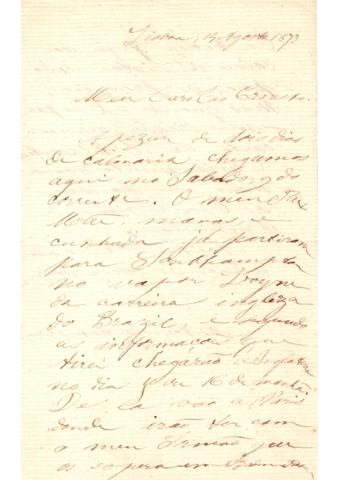 Lisboa, 14 Agosto 1873
Meu Caro Tio Ernesto.
A pezar de dois dias
de calmaria, chegamos
aqui no Sabado, 9 do
corrente. O meu Pai,
manas, e
cunhada já partiram
para Southampton
no vapor Boyne
da carreira ingleza
do Brazil e segundo
as informações que
tirei chegarão a Inglaterra
no dia 15 ou 16 de manhã
De lá vão a Paris
donde irão ter com
o meu Irmão que
os espera em